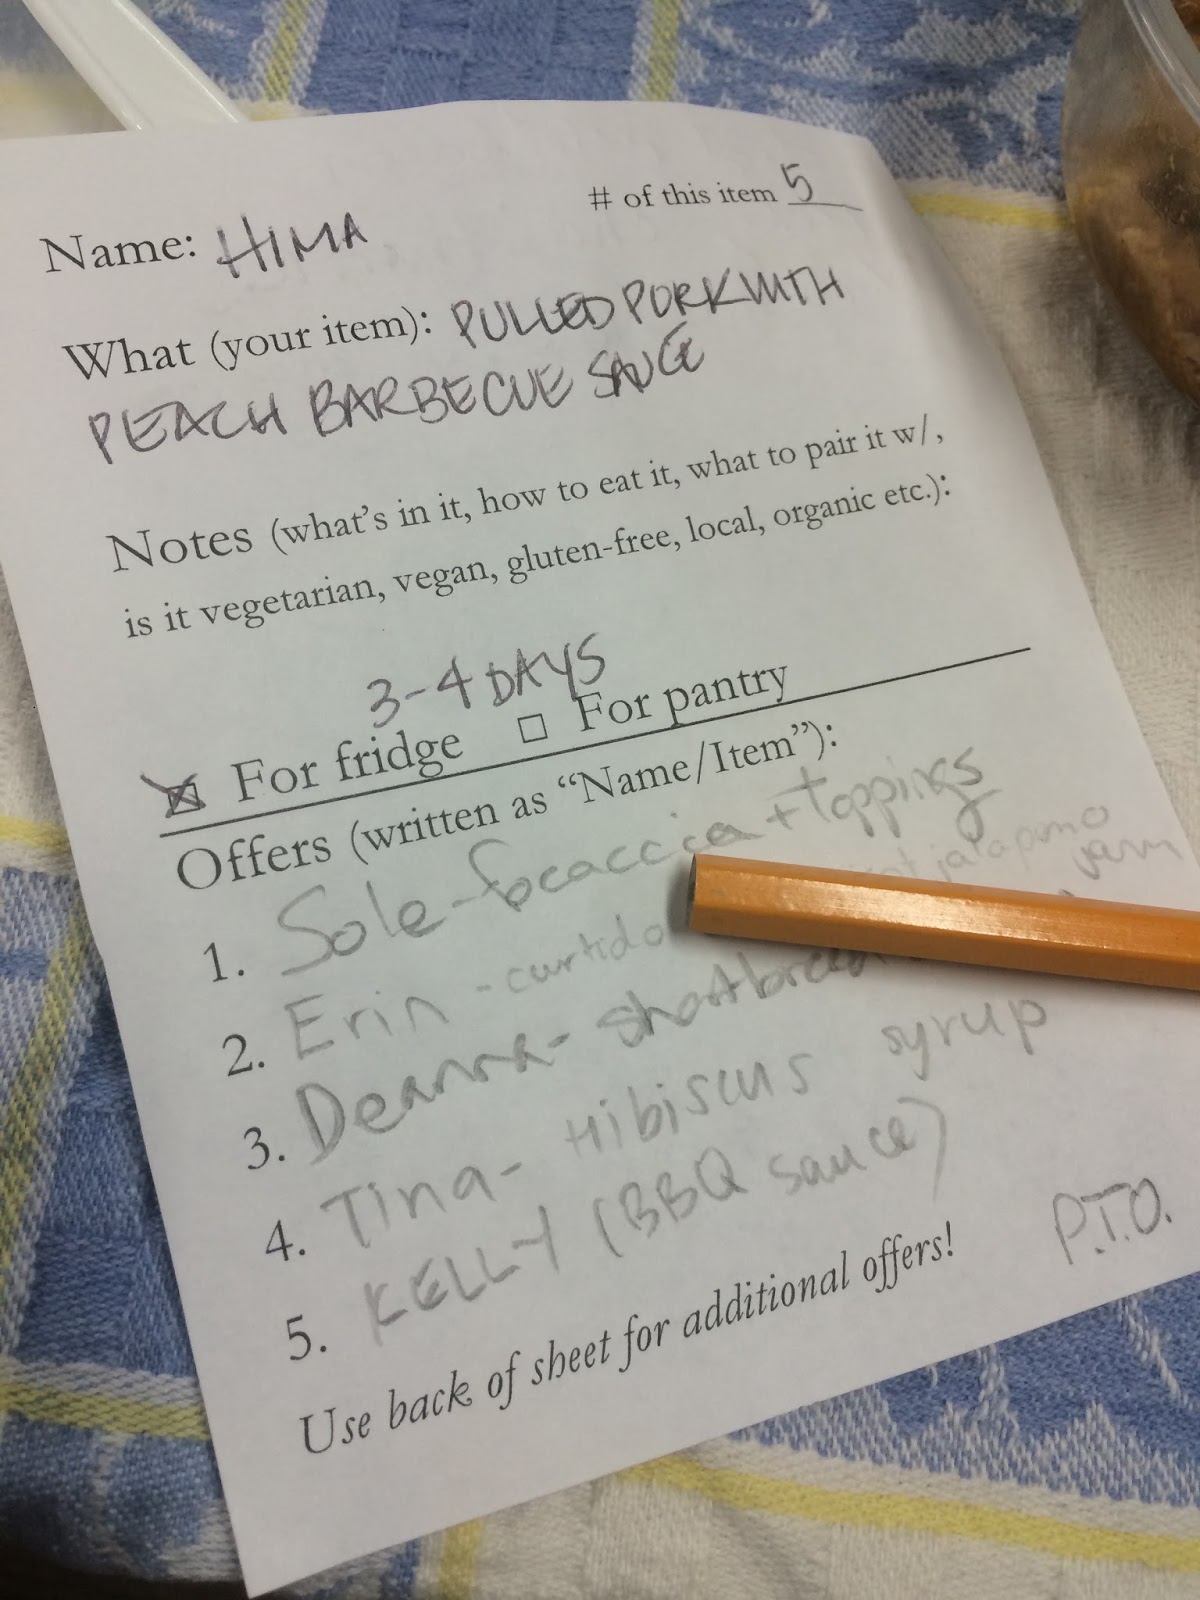 # of this item 5
Name: HIMA
What (your item): PULLED PORK WITH
PEACH BARBECUE SAUCE
Notes (what's in it, how to eat it, what to pair it w/,
is it vegetarian, vegan, gluten-free, local, organic etc.):
3-4 DAYS
For fridge For pantry
Offers (written as “Name/Item”):
1. Sole - focaccia + toppings
2. Erin - curtido jalapeno
jam
3. Deanna - shortbread
4. Tina - Hibiscus syrup
5. KELLY (BBQ sauce)
P.T.O.
Use back of sheet for additional offers!